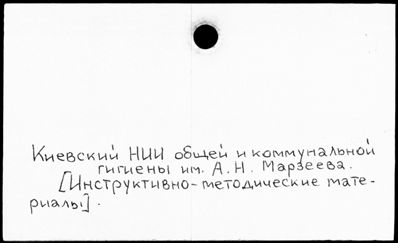 Киевский НИИ общей и коммунальной
гигиены им. А.Н. Марзеева.
[Инструктивно-методические мате-
риалы].